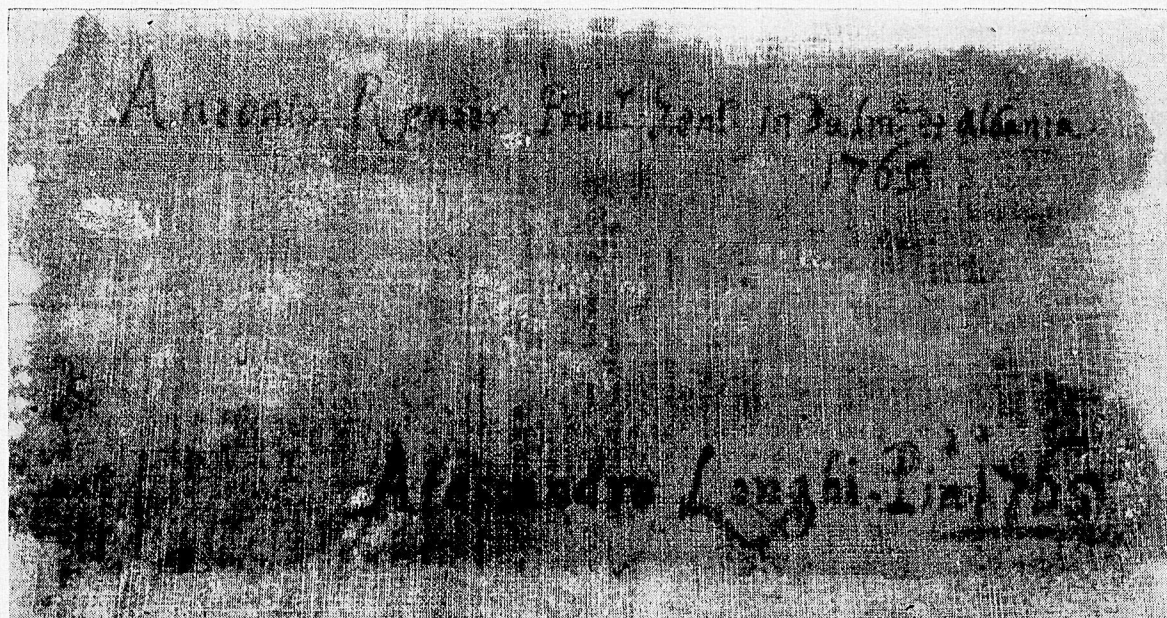 Antonio Renier Prov.r Genl. in Dalm.a et Albania
1765
Alessandro Longhi Pin 1765